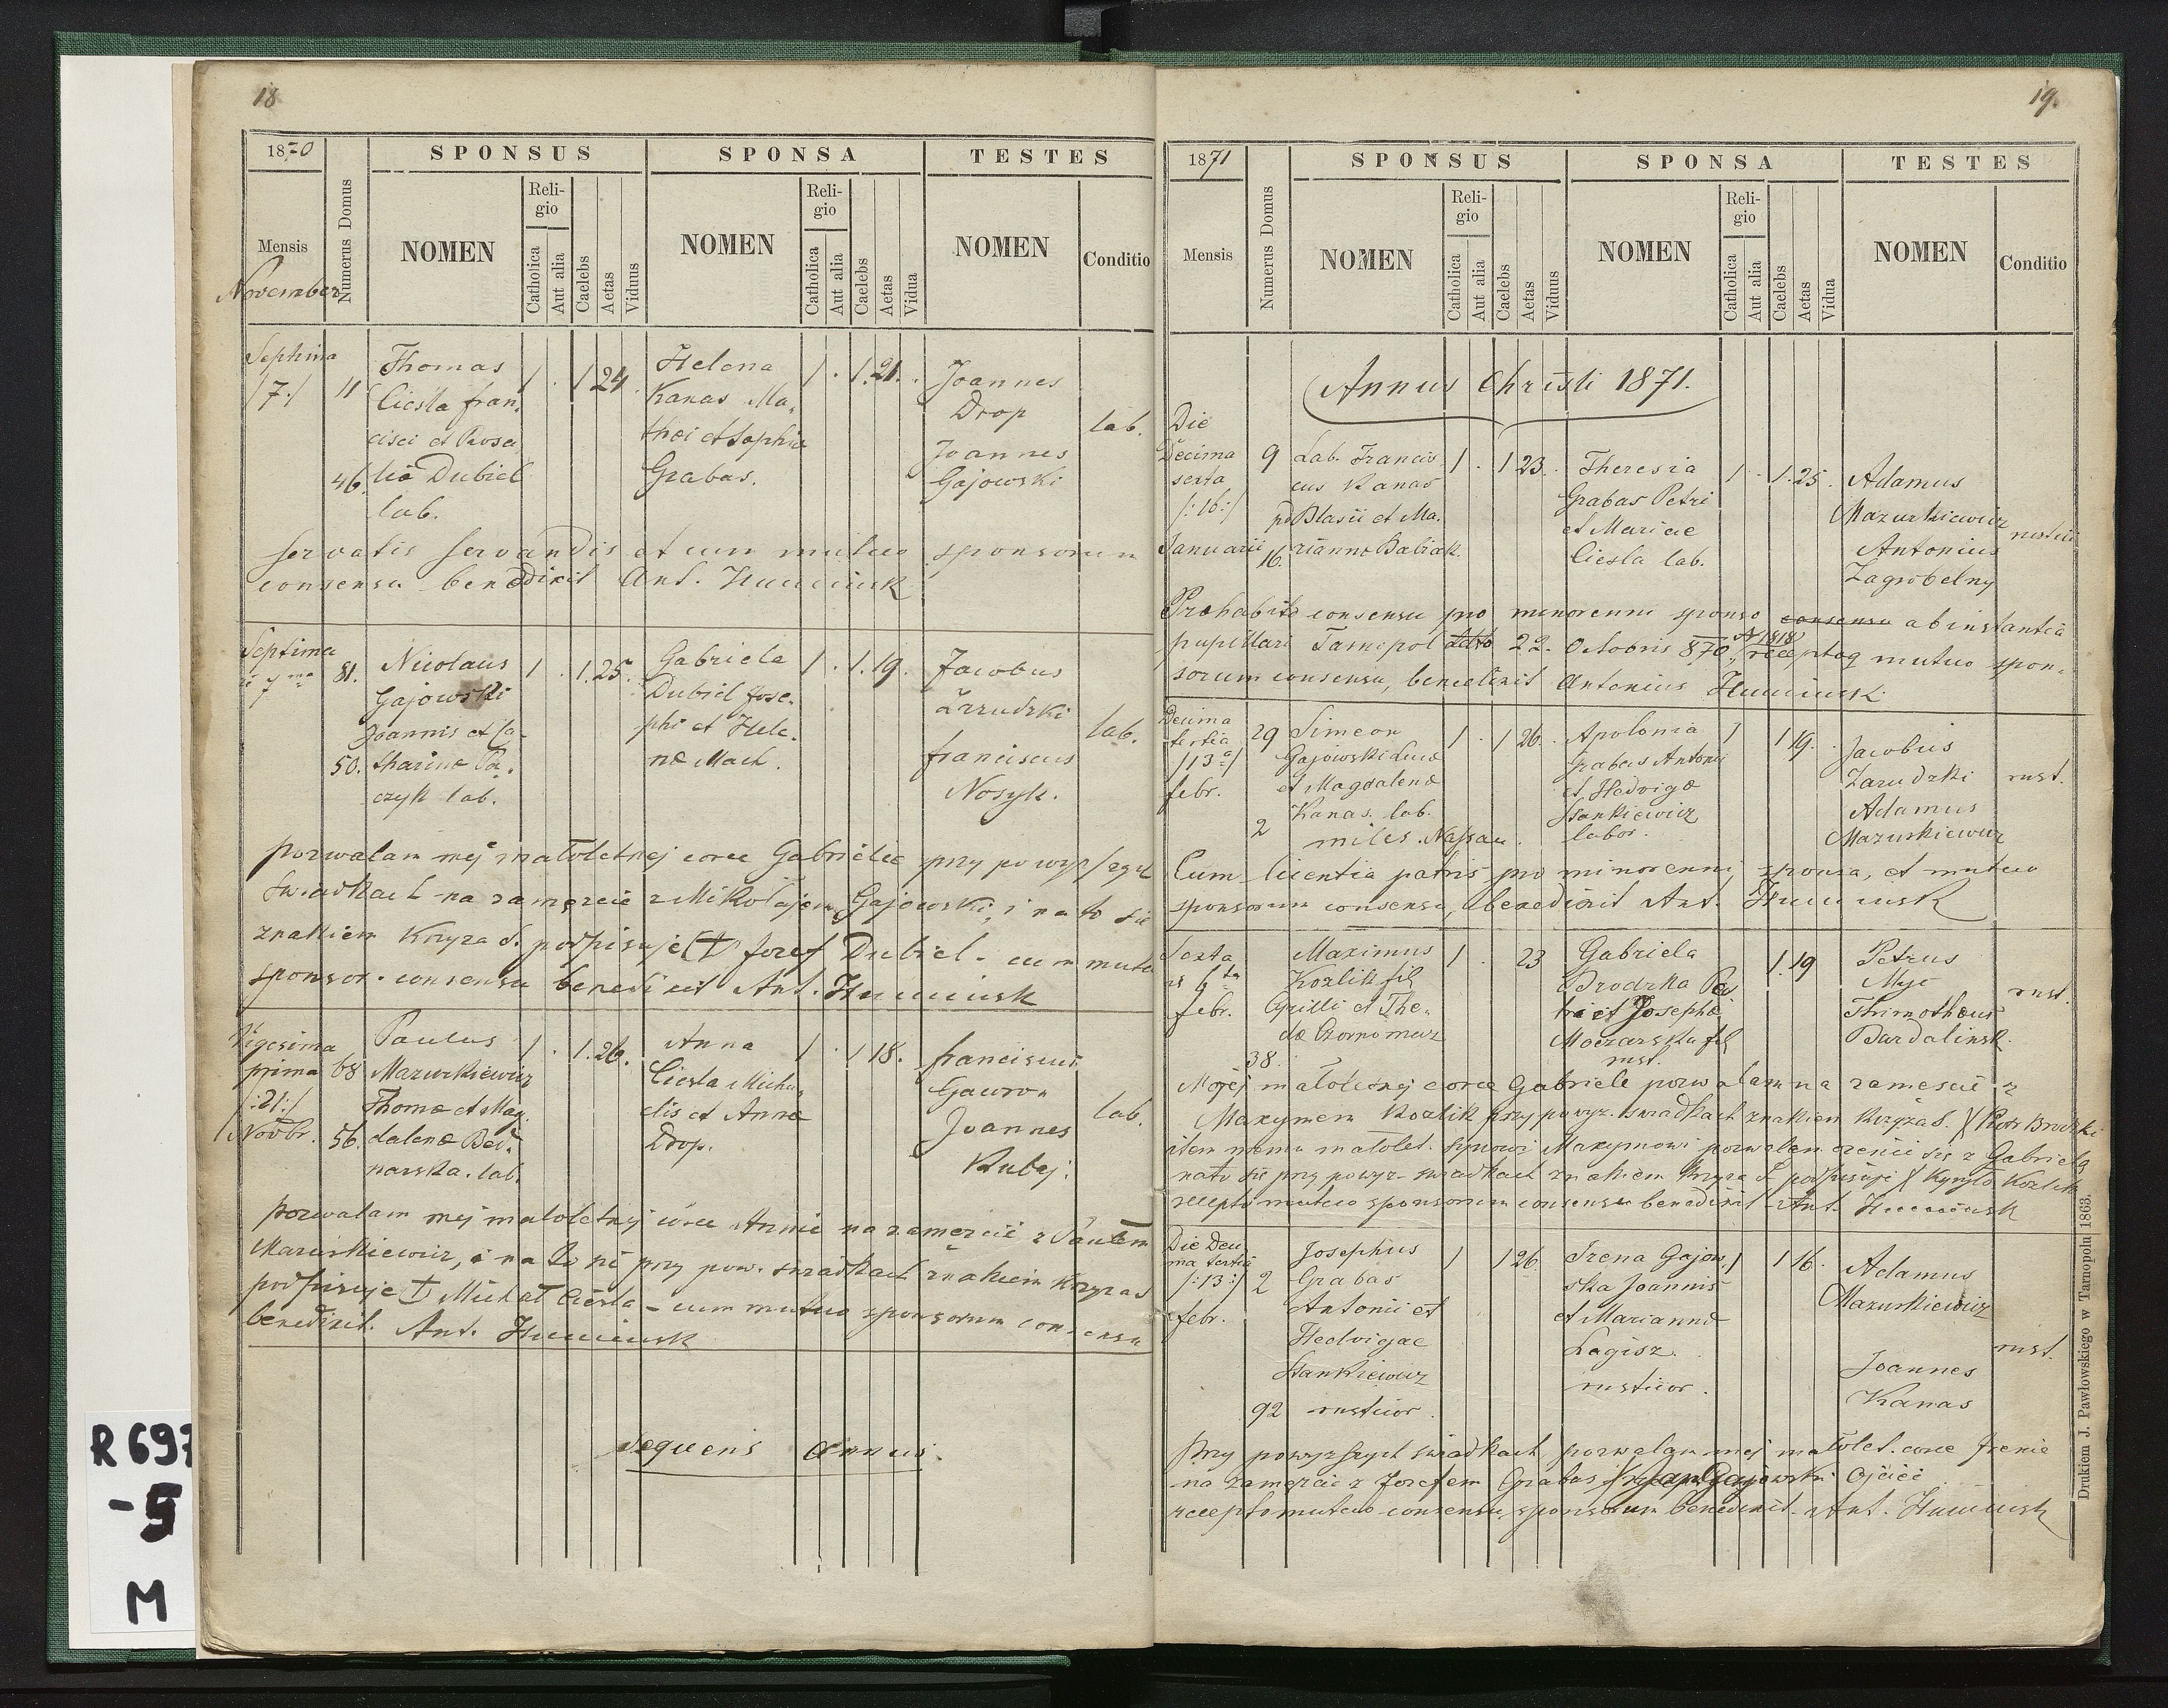 18
1870
SPONSUS
SPONSA
TESTES
Mensis
Numerus Domus
NOMEN
Religio
Catholica
Aut alia
Caelebs
Aetas
Viduus
NOMEN
Religio
Catholica
Aut alia
Caelebs
Aetas
Vidua
NOMEN
Conditio
November
Sephina
/7./
11
46.
Thomas
Ciesla fran,
cisci et Rosa
liæ Dubiel
lab.
1 . 1 24.
Helena
Kanas Ma,
thæi et Sophiæ
Grabas.
1 . 1. 21. .
Joannes
Drop
Joannes
Gajowski
lab.
Servatis servandis et cum mutuo sponsorum
consensu benedixit Ant.
Septima
7ma
81.
50.
Nicolaus
Gajowski
Joannis et Ca-
tharinæ Pa,
czyk lab.
1 . 1. 25.
Gabriela
Dubiel Jose-
phi et Hele-
næ Mach.
1 . 1. 19.
Jacobus
Zarudzki
franciscus
Nosyk.
lab.
pozwalam mej małoletnej corce Gabrielie przy powyższych
swiadkach na zamęzcie z Mikołajem Gajowski, i na to się
znakiem Krzyża S. podpisuje † Jozef Dubiel - cum mutuo
sponsor. consensu benedixit Ant.
Vigesima
prima
/:21:/
Novbr.
68
56.
Paulus
Mazurkiewicz
Thomæ et Mag,
dalenæ Bed,
narska. lab.
1 . 1. 26.
Anna
Ciesla Micha,
elis et Annæ
Drop.
1 . 1 18.
franciscus
Gawron
Joannes
Kubaj.
lab.
pozwalam mej małoletnej córce Annie na zamęzcie z Pawłem
Mazurkiewicz, i na to się przy pow. swiadkach znakiem Krzyza S
podpisuje † Michał Ciesla - cum mutuo sponsorum consensu
benedixit. Ant.
sequens annus.
19.
1871
SPONSUS
SPONSA
TESTES
Mensis
Numerus Domus
NOMEN
Religio
Catholica
Aut alia
Caelebs
Aetas
Viduus
NOMEN
Religio
Catholica
Aut alia
Caelebs
Aetas
Vidua
NOMEN
Conditio
Annus Christi 1871.
Die
Decima
sexta
/:16:/
Januarii
9
16.
Lab. Francis
cus Kanas
Blasii et Ma.
riannæ Babiak.
1 . 1 23.
Theresia
Grabas Petri
et Mariae
Ciesla lab.
1 . 1. 25.
Adamus
Mazurkiewicz
Antonius
Zagrobelny
rustici
Præhabito consensu pro minorenni sponso consensu ab instantia
pupillari Tarnopol dtto 22. Octobris 870, N 1818 receptoq mutuo spon-
sorum consensu, benedixit Antonius
Decima
tertia
/13a/
febr.
29
2
Simeon
Gajowski Lucæ
et Magdalenæ
Kanas. lab.
miles. Nassau.
1 . 1 26.
Apolonia
Grabas Antonii
et Hedvigæ
Stankiewicz
labor.
1 1 19.
Jacobus
Zarudzki
Adamus
Mazurkiewicz
rust.
Cum licentia patris pro minorenni sponsa, et mutuo
sponsorum consensu, benedixit Ant.
Sexta
6ta
febr.
38.
Maximus
Kozlik fil
Cyrilli et The-
clæ Czornomaz
1 . 23
Gabriela
Brodzka Pe
tri et Josephæ
Moczarska fil
rust.
1. 19
Petrus
Myc
Thimotheus
Bardalinsk.
rust.
Mojej małoletnej corce Gabriele pozwalam na zamescie z
Maxymem Kozlik przy powyz. swiadkach znakiem krzyża S. X Piotr Brodzki
item memu małolet. synowi Maxymowi pozwalam żenić się z Gabrielą
na to się przy powyz- swiadkach znakiem krzyza S podpisuje X Kyryło Kozlik
recepto mutuo sponsorum consensu benedixit - Ant.
Die Deci
ma tertia
/:13:/
febr.
2
92
Josephus
Grabas
Antonii et
Hedvigae
Stankiewicz
rusticor.
1 1 26.
Irena Gajow,
ska Joannis
et Mariannæ
Łagisz.
rusticor.
1 1 16.
Adamus
Mazurkiewicz
Joannes
Kanas
rust.
Przy powyzszych swiadkach, pozwalam mej małolet. corce Irenie
na zamęzcie z Jozefem Grabas Jan Gajowski Ojciec
recepto mutuo consensu, sponsorum benedixit. Ant.
Drukiem J. Pawłowskiego w Tarnopolu 1863.
R 697
-5
M